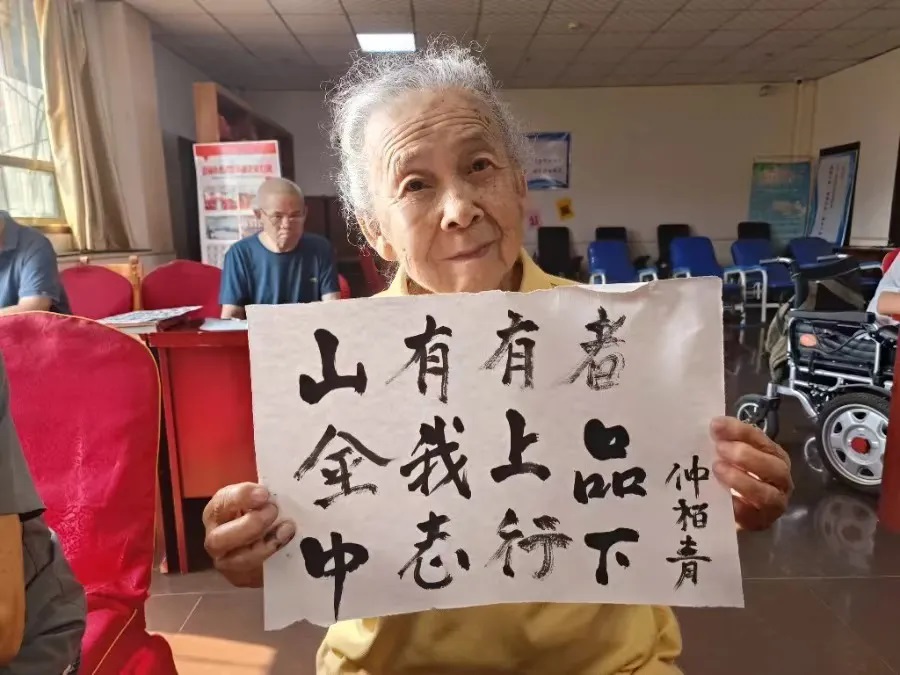 山有有者
金我上品
中志行下
仲栢青